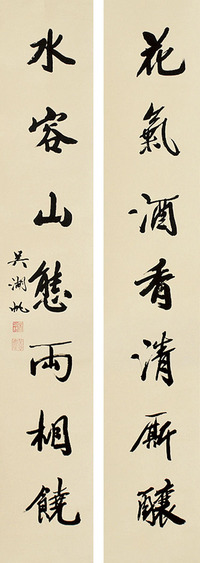 花氣酒香清厮釀
水容山態雨相饒
吳湖帆